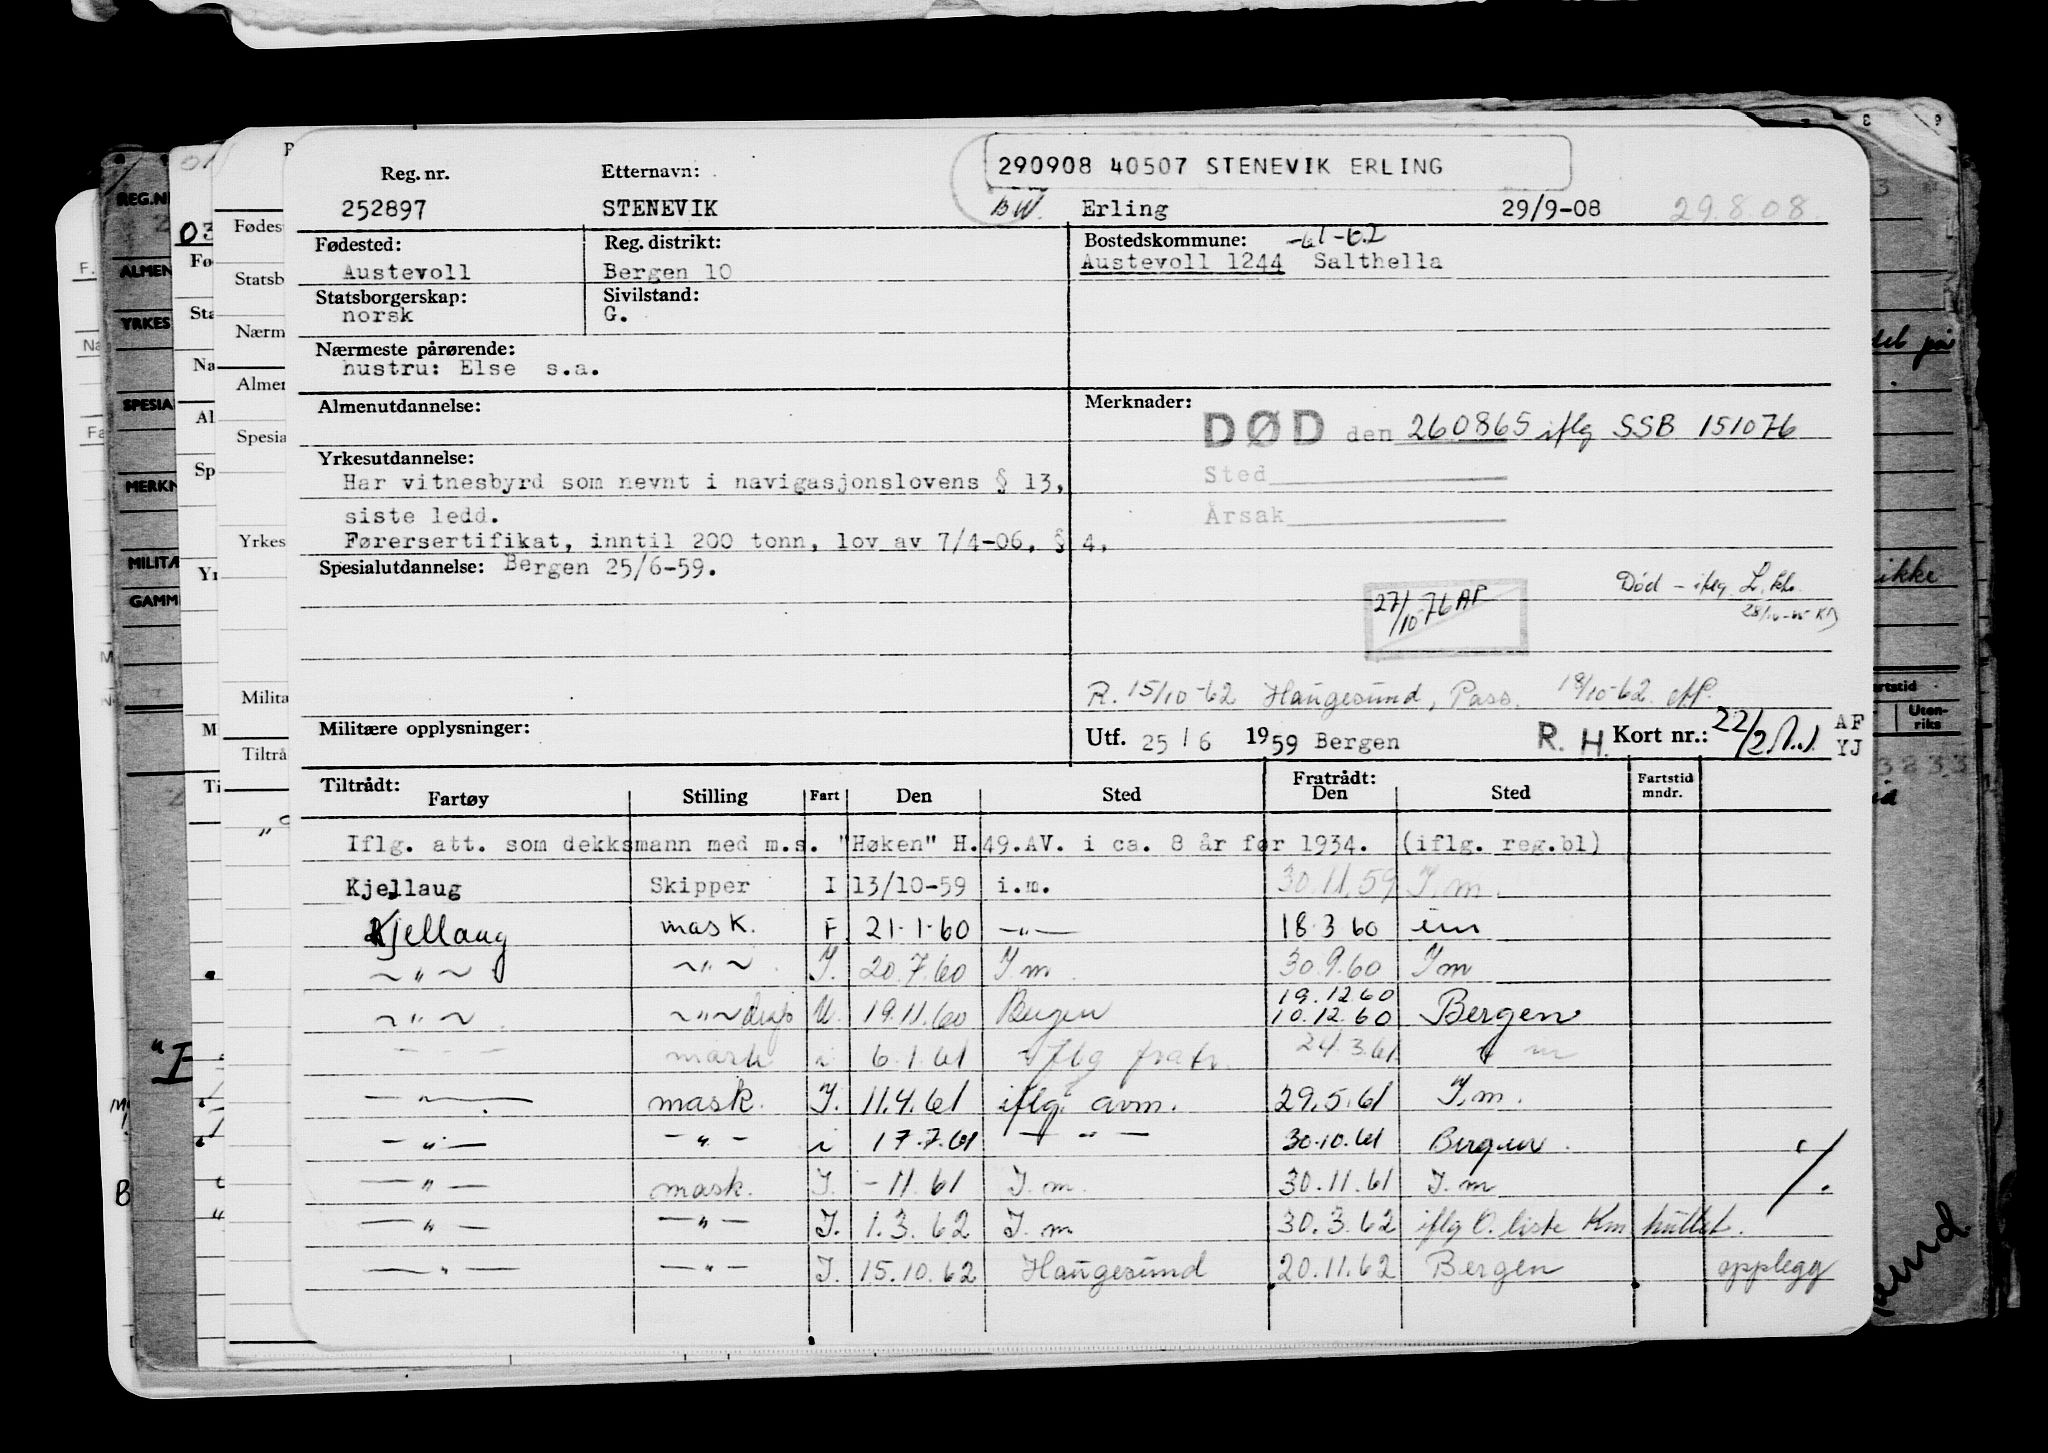 290908 40507 STENEVIK ERLING
Reg. nr. Etternavn:
252897 STENEVIK BW. Erling 29/9-08 29.8.08
Fødested: Reg. distrikt: Bostedskommune: -61-62
Austevoll Bergen 10 Austevoll 1244 Salthella
Statsborgerskap: Sivilstand:
norsk G.
Nærmeste pårørende:
hustru: Else s.a.
Almenutdannelse: Merknader:
DØD den 260865 iflg SSB 151076
Yrkesutdannelse:
Har vitnesbyrd som nevnt i navigasjonslovens § 13, Sted
siste ledd. Årsak
Førersertifikat, inntil 200 tonn, lov av 7/4-06, § 4,
Spesialutdannelse: Bergen 25/6-59.
Død - iflg
27/10-76 AP
R. 15/10-62 Haugesund, Pass. 18/10-62
Militære opplysninger: Utf. 25/6 1959 Bergen R. H. Kort nr.: 22/2 AF
YJ
Tiltrådt: Fratrådt: Fartstid
Fartøy Stilling Fart Den Sted Den Sted mndr.
Iflg. att. som dekksmann med m.s. "Høken" H.49.AV. i ca. 8 år før 1934. (iflg. reg.bl)
Kjellaug Skipper I 13/10-59 i.m. 30.11.59 I.m.
Kjellaug mask. F. 21-1-60 -"- 18.3 60 im
~"~ ~"~ I. 20.7.60 I.m. 30.9.60 Im
~"~ ~"~ U. 19.11.60 Bergen 19.12 60
10.12.60 Bergen
-"- mask i 6.1.61 iflg fratr. 24.3.61 i m
-"- mask. I. 11.4.61 iflg. avm. 29.5.61 I.m.
-"- -"- i 17.7.61 -"- 30.10.61 Bergen.
-"- mask. I. -11.61 I.m. 30.11.61 I.m
-"- -"- I. 1.3.62 I.m. 30.3.62 iflg O. liste Km
-"- -"- I. 15.10.62 Haugesund 20.11.62 Bergen opplegg